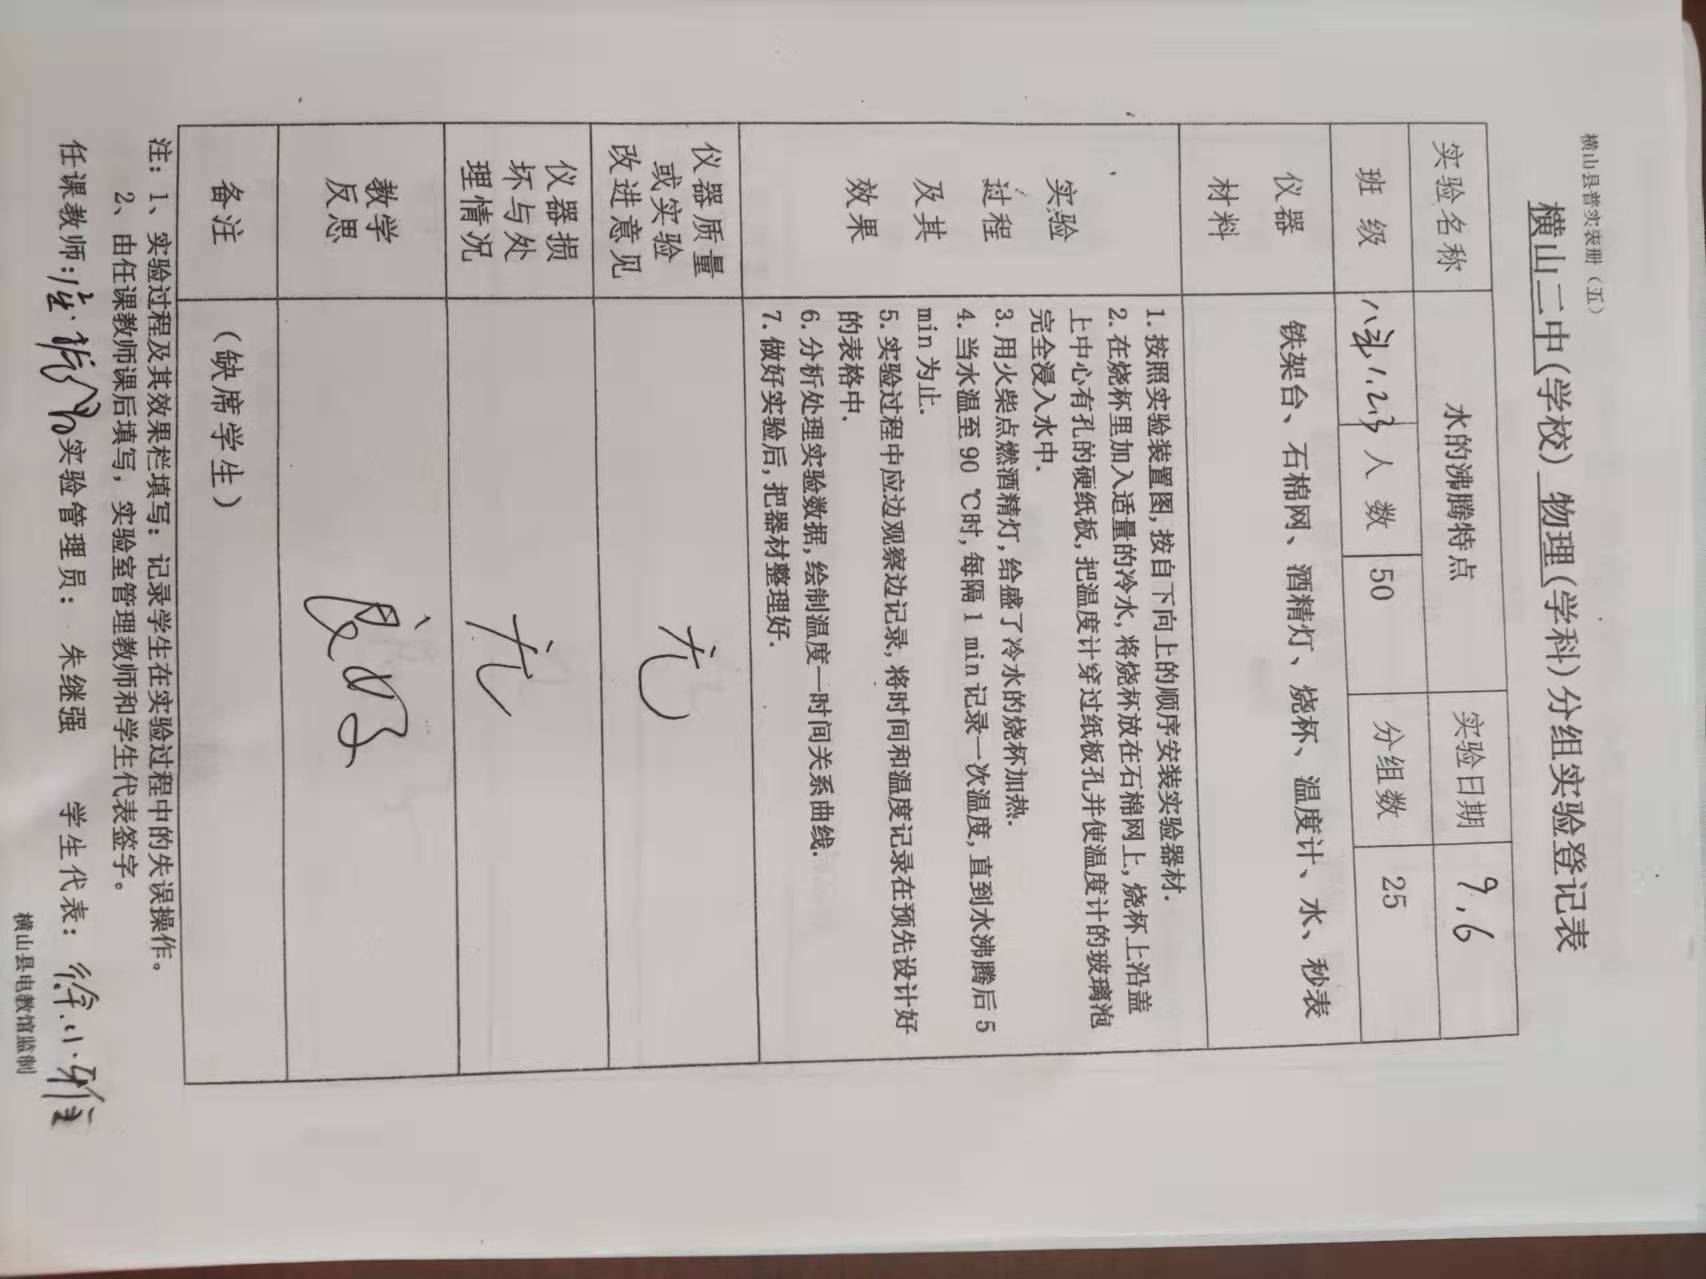 横山县普实表册（五）
横山二中(学校) 物理(学科)分组实验登记表
实验名称 水的沸腾特点 实验日期 9.6
班 级 人 数 50 分组数 25
仪器
材料
铁架台、石棉网、酒精灯、烧杯、温度计、水、秒表
实验
过程
及其
效果
1.按照实验装置图,按自下向上的顺序安装实验器材.
2.在烧杯里加入适量的冷水,将烧杯放在石棉网上,烧杯上沿盖
上中心有孔的硬纸板,把温度计穿过纸板孔并使温度计的玻璃泡
完全浸入水中.
3.用火柴点燃酒精灯,给盛了冷水的烧杯加热.
4.当水温至90 ℃时,每隔1 min记录一次温度,直到水沸腾后5
min为止.
5.实验过程中应边观察边记录,将时间和温度记录在预先设计好
的表格中.
6.分析处理实验数据,绘制温度—时间关系曲线.
7.做好实验后,把器材整理好.
仪器质量
或实验
改进意见
无
仪器损
坏与处
理情况
无
教学
反思
良好
备注 （缺席学生）
注：1、实验过程及其效果栏填写：记录学生在实验过程中的失误操作。
2、由任课教师课后填写，实验室管理教师和学生代表签字。
任课教师: 实验管理员： 朱继强 学生代表：徐小雅
横山县电教馆监制